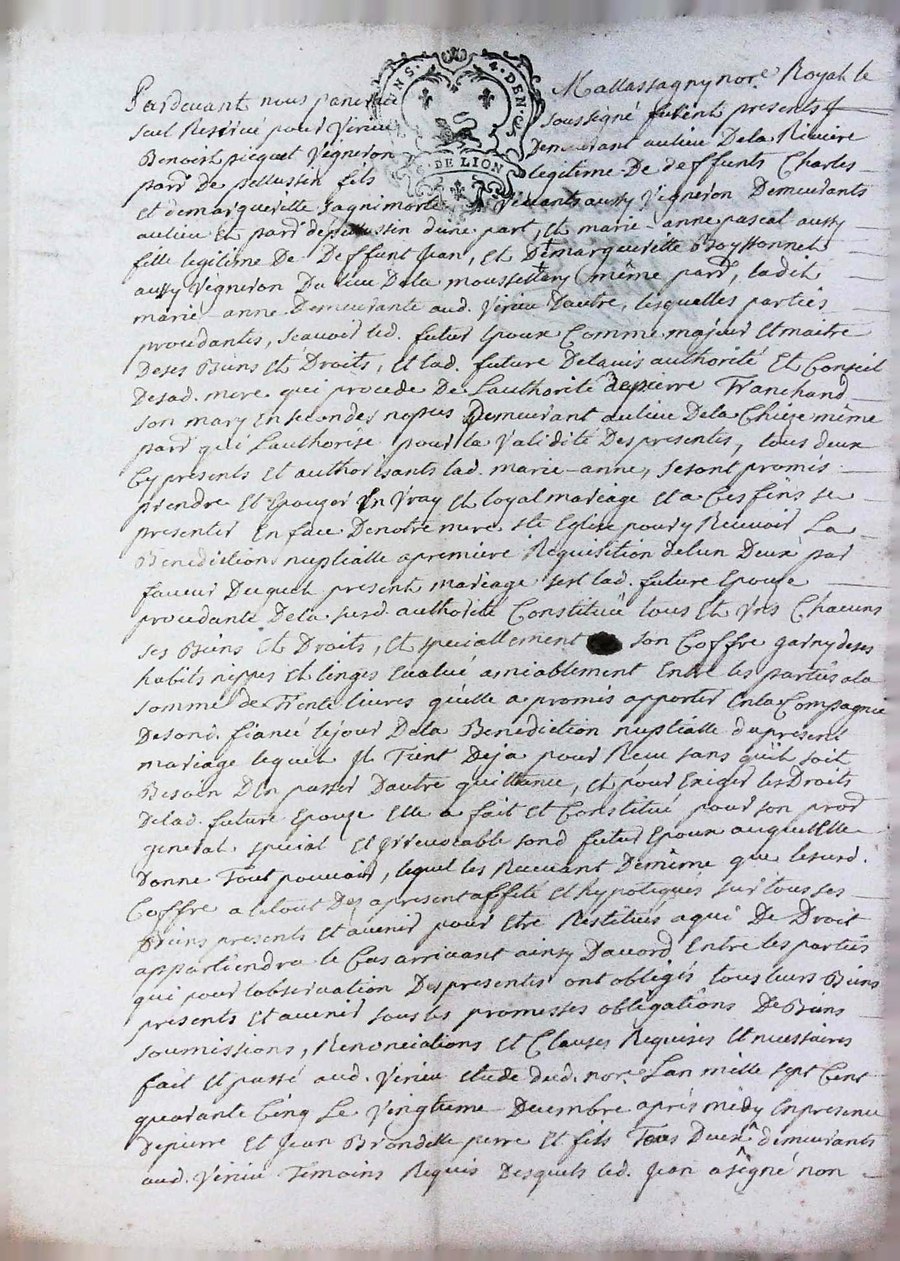 Pardevant nous pancrace Mallassagny nore. Royal le
seul Reservé pour Virieu soussigné furent presents
Benoist picquet Vigneron Demeurant au lieu Dela Riviere
parr. De pellussin fils legitime De deffunts Charles
Et demargueritte gagnimorte Vivants aussy Vigneron Demeurants
au lieu Et parr. de pellussin dune part, Et marie-anne pascal aussy
fille legitime De Deffunt Jean, Et Demarguerette Boyssonnet
aussy Vigneron Du lieu Dela moussettery même parr, ladit
marie-anne Demeurante aud. Virieu Dautre, lesquelles parties
procedantes, scavoir led. futur Epoux Comme majeur Et maitre
Deses Biens Et Droits, Et lad. future Delavis authorité Et Conseil
Desad. mere qui procede De Lauthorité depierre Tranchand
son mary En secondes nopces Demeurant au lieu Dela Chieze même
parr qui Lauthorise pour la Validité Des presentes, tous deux
Cy presents Et authorisants lad. marie-anne, se sont promis
prendre Et Epouser En Vray Et loyal mariage Et a Ces fins se
presenter En face Denotre mere ste Eglise pour y Recevoir La
Benediction nuptialle a premiere Requisition delun Deux par
faveur Duquel present mariage sest lad. future Epouse
procedante Dela susd. authorité Constitué tous Et Uns Chacuns
ses Biens Et Droits, Et speciallement son Coffre garny deses
habits nippes Et linges Evalué amiablement Entre les parties ala
somme de Trente livres quelle a promis apporter En la Compagnie
Desond. fiancé le jour Dela Benediction nuptialle du present
mariage lequel Il Tient Deja pour Recu sans quil soit
Besoin DEn passer Dautre quittance, Et pour Exiger les Droits
Delad. future Epouse Elle a fait Et Constitué pour son procr
general special Et Irrevocable sond futur Epoux auquel Elle
Donne Tout pouvoir, lequel les Recevant De même que lesusd.
Coffre a le tout Des a present affeté Et hypotiqués sur tous ses
Biens presents Et avenir pour Etre Restitués a qui De Droit
appartiendra le Cas arrivant ainsy Daccord Entre les parties
qui pour lobservation Des presentes ont obligés tous leurs Biens
presents Et avenir sous les promesses obligations De Biens
soumissions, Renonciations Et Clauses Requises Et necessaires
fait Et passé aud. Virieu Etude dud. nore. Lan mille sept Cent
quarante Cinq Le Vingtieme Decembre après midy En presence
De pierre Et Jean Brondelle perre Et fils Tous Deux demeurants
aud. Virieu Temoins Requis Desquels led. Jean a signé non
DE LION